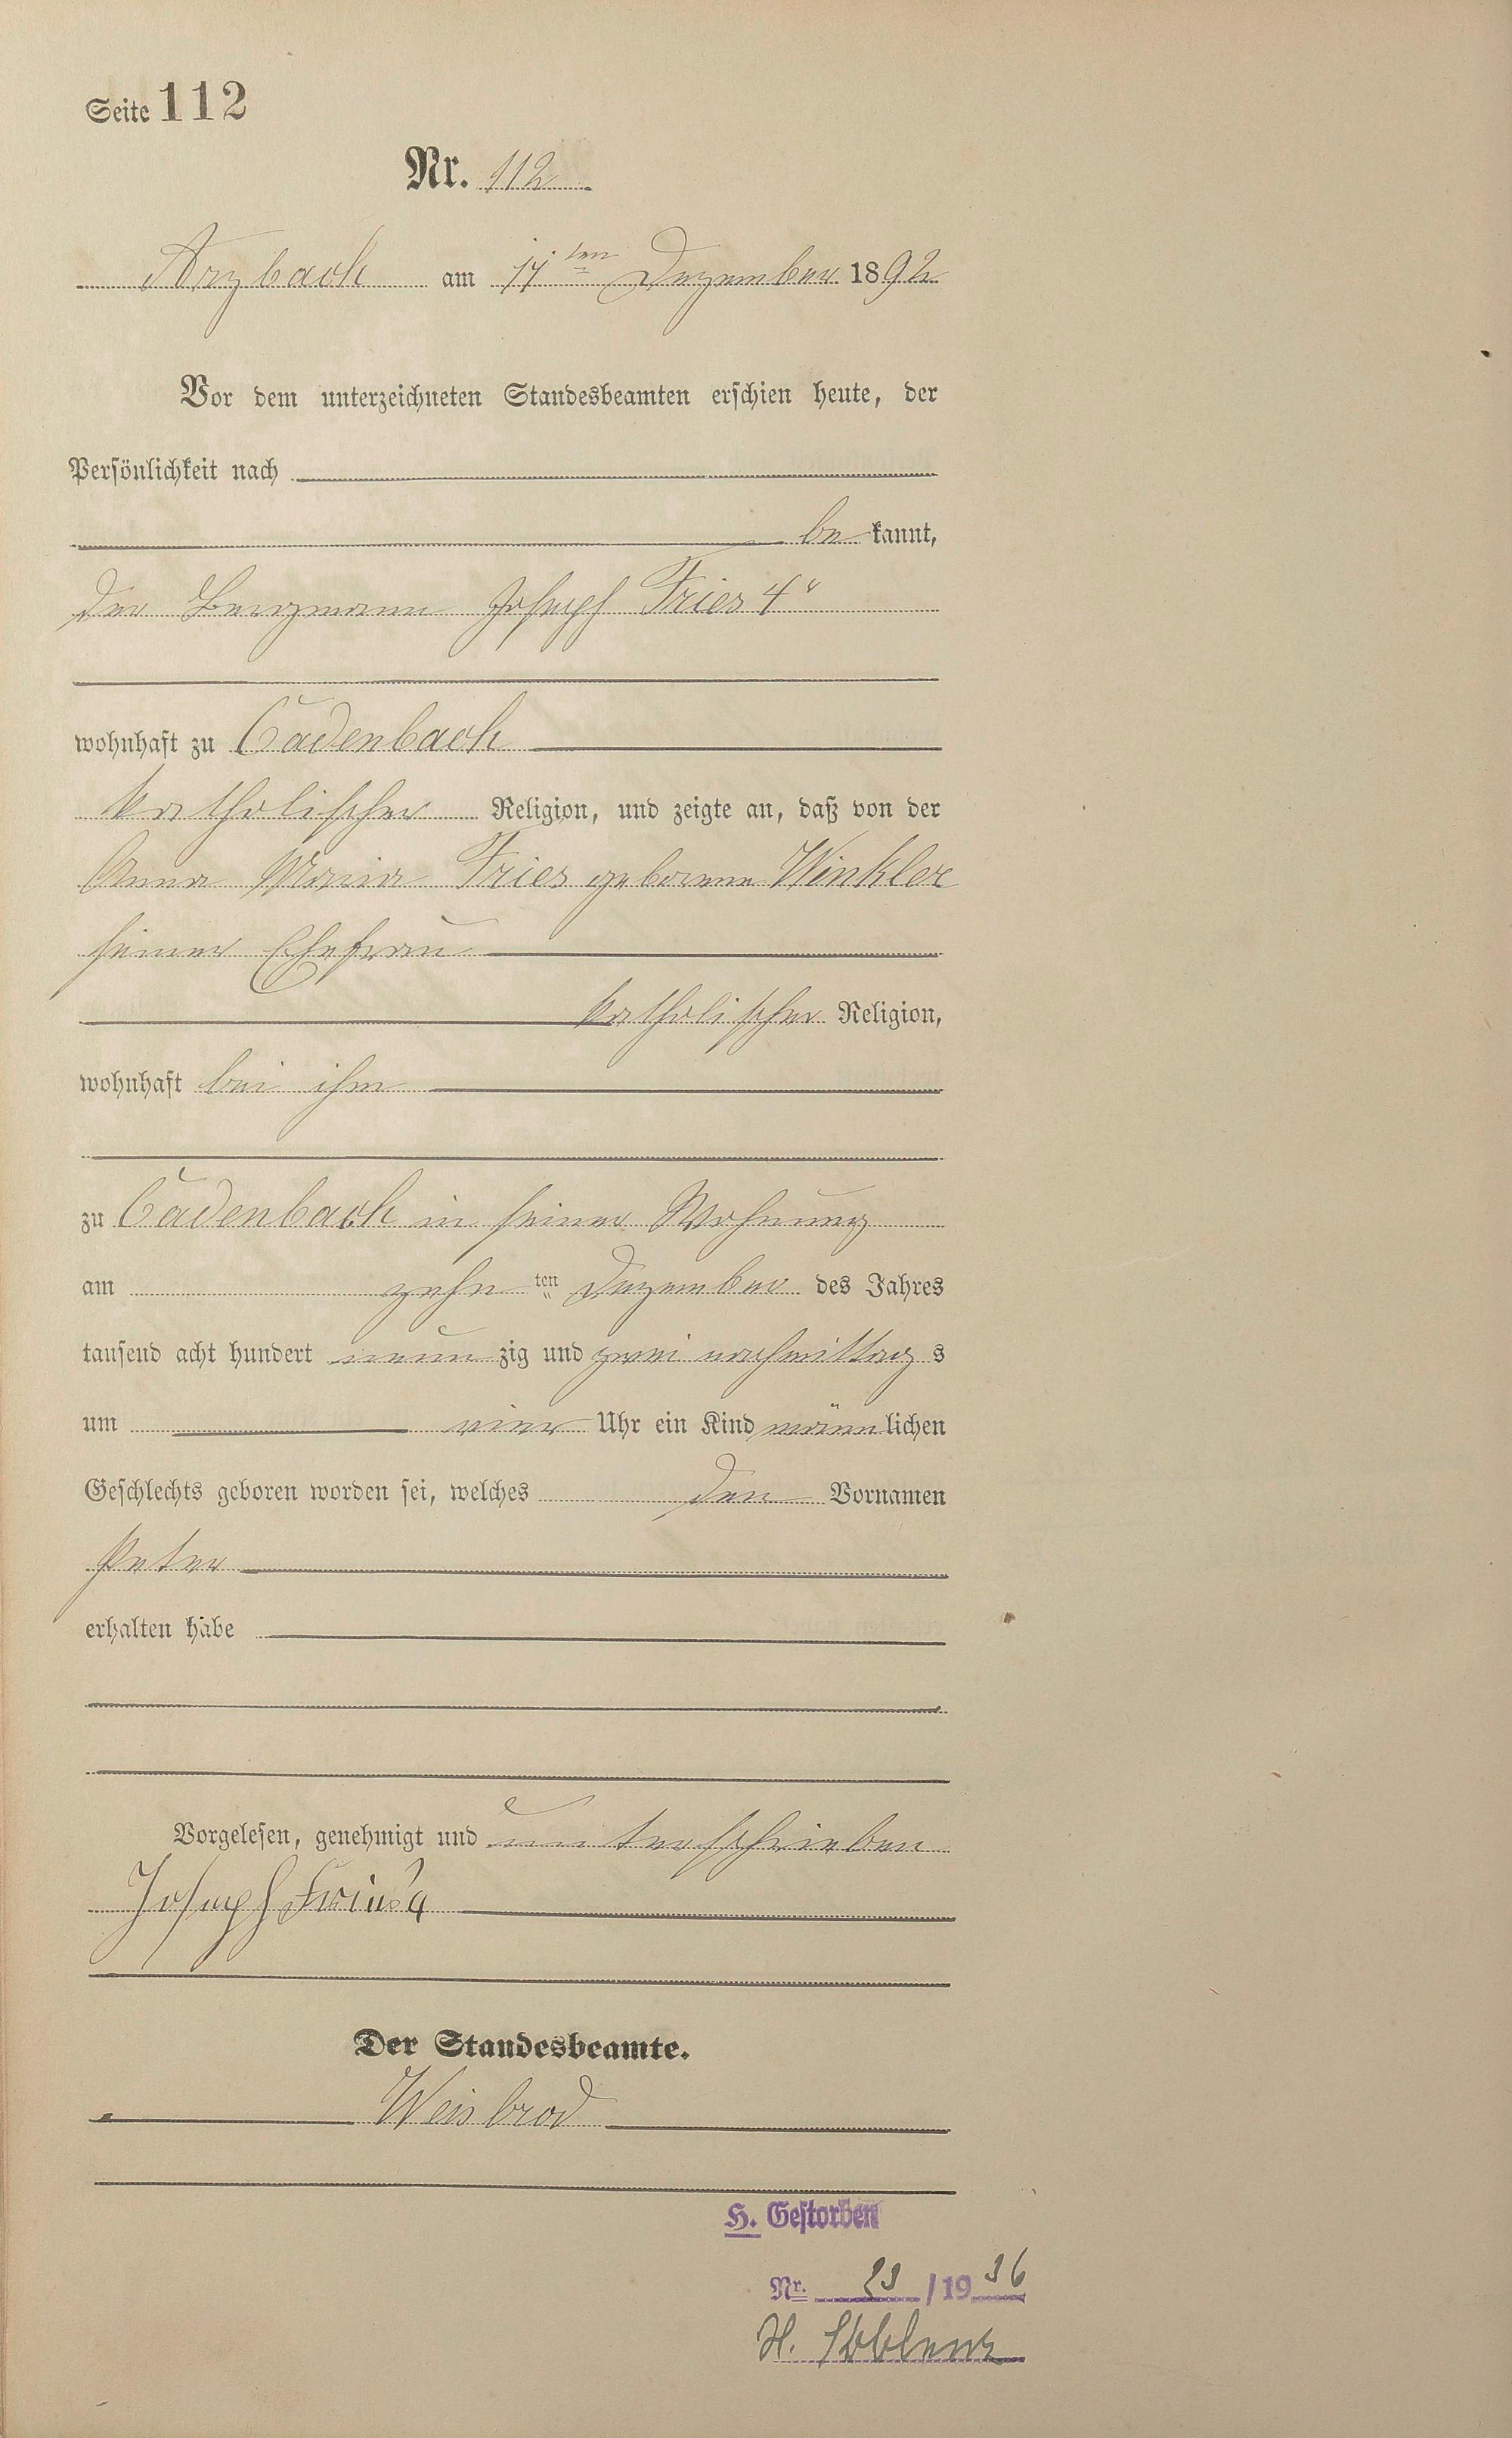 Seite 112
Nr. 112
Arzbach am ten Dezember 1892
Vor dem unterzeichneten Standesbeamten erschien heute, der
Persönlichkeit nach
be kannt,
der Bergmann Joseph Fries 4"
wohnhaft zu Cadenbach
katholischer Religion, und zeigte an, daß von der
Anna Maria Fries geborene Winkler
seiner Ehefrau
katholischer Religion,
wohnhaft bei ihm
zu Cadenbach in seiner Wohnung
am zehn ten Dezember des Jahres
tausend acht hundert neun zig und zwei nachmittag s
um vier Uhr ein Kind männ lichen
Geschlechts geboren worden sei, welches den Vornamen
Peter
erhalten habe
Vorgelesen, genehmigt und unterschrieben
Joseph Fries 4
Der Standesbeamte.
Weisbrod
H. Gestorben
Nr. 23 /19 36
St. Koblenz